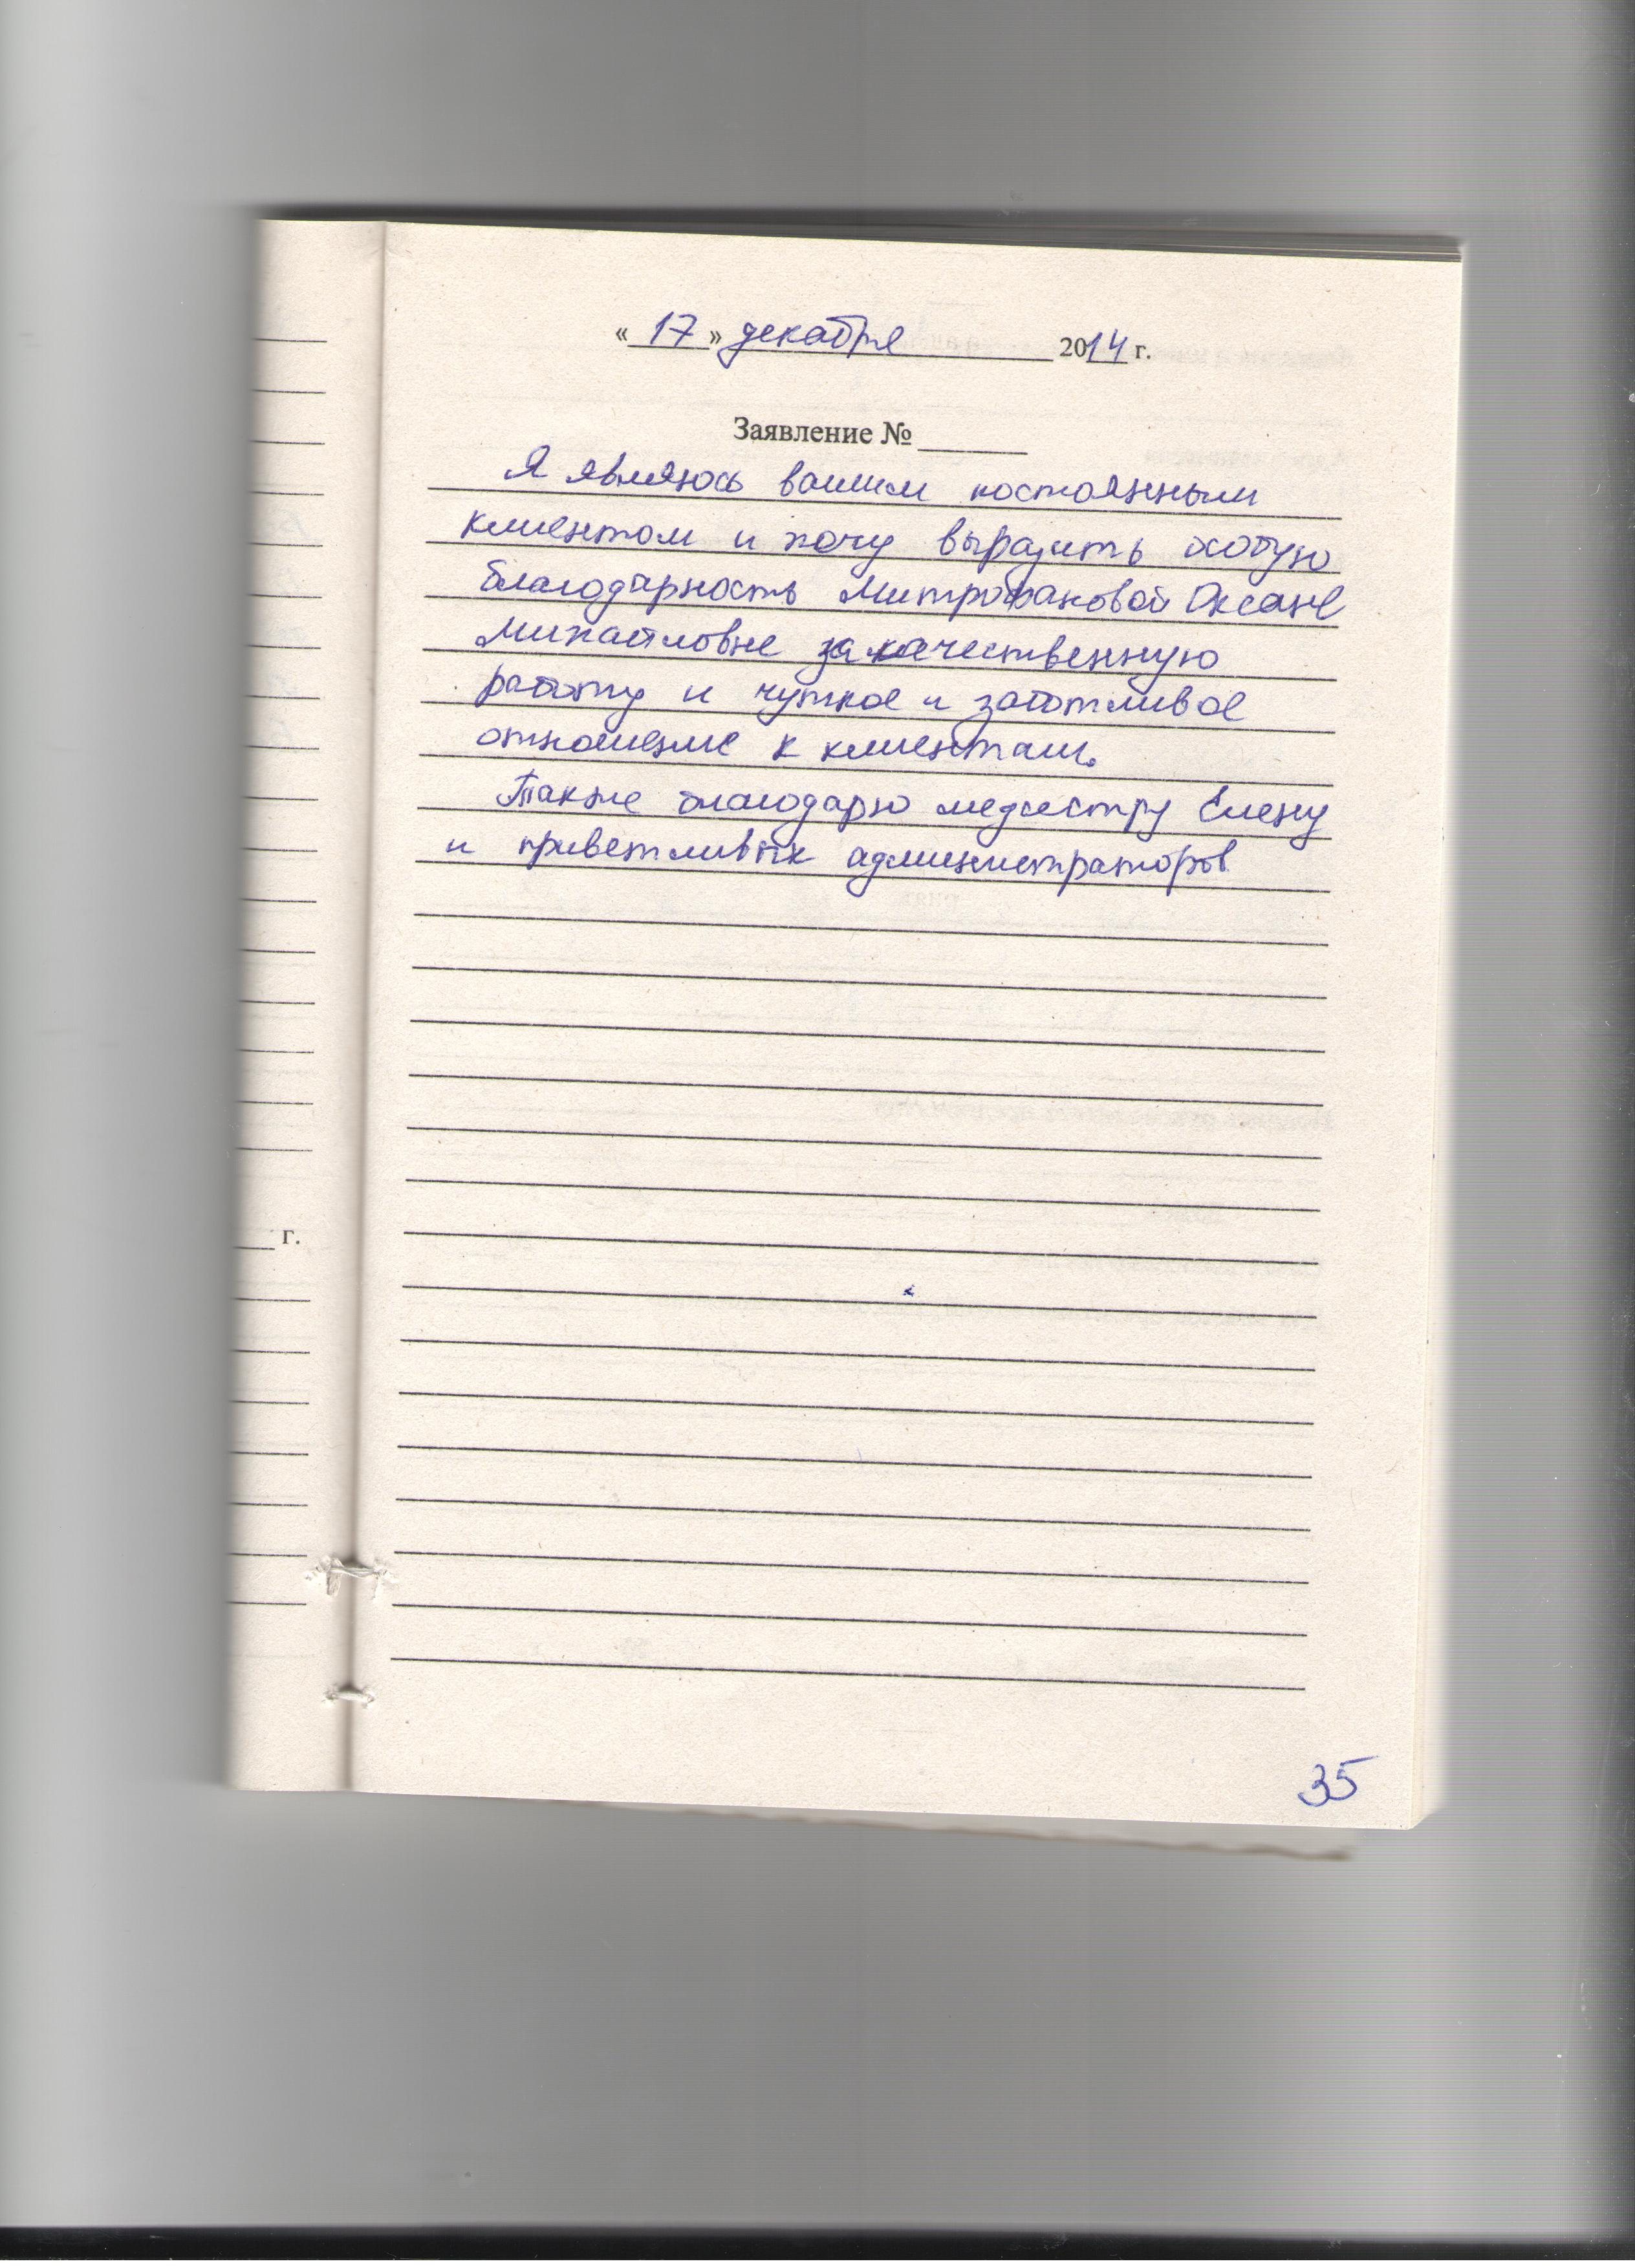 « 17 » декабря 2014 г.
Заявление № ______
Я являюсь вашим постоянным
клиентом и хочу выразить особую
благодарность Митрофановой Оксане
Михайловне за качественную
работу и чуткое и заботливое
отношение к клиентам.
Также благодарю медсестру Елену
и приветливых администраторов
г.
35